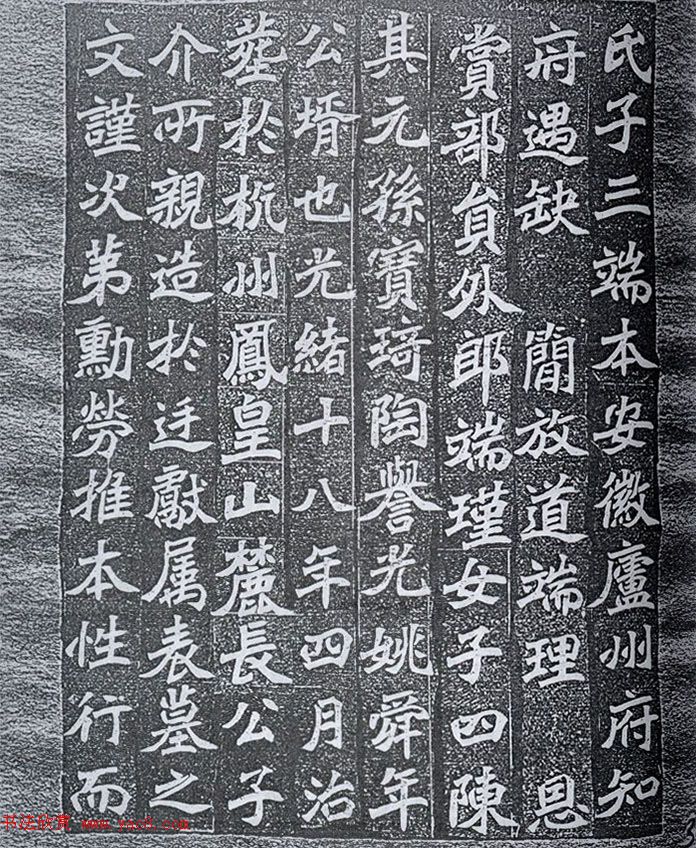 氏子三端本安徽廬州府知
府遇缺 簡放道端理 恩
賞部貟外郎端瑾女子四陳
其元孫寶琦陶譽光姚舜年
公壻也光緒十八年四月治
塟於杭州鳳皇山麓長公子
介所親造於廷獻属表墓之
文謹次苐勳勞推本性行而
书法欣赏 www.yac8.com